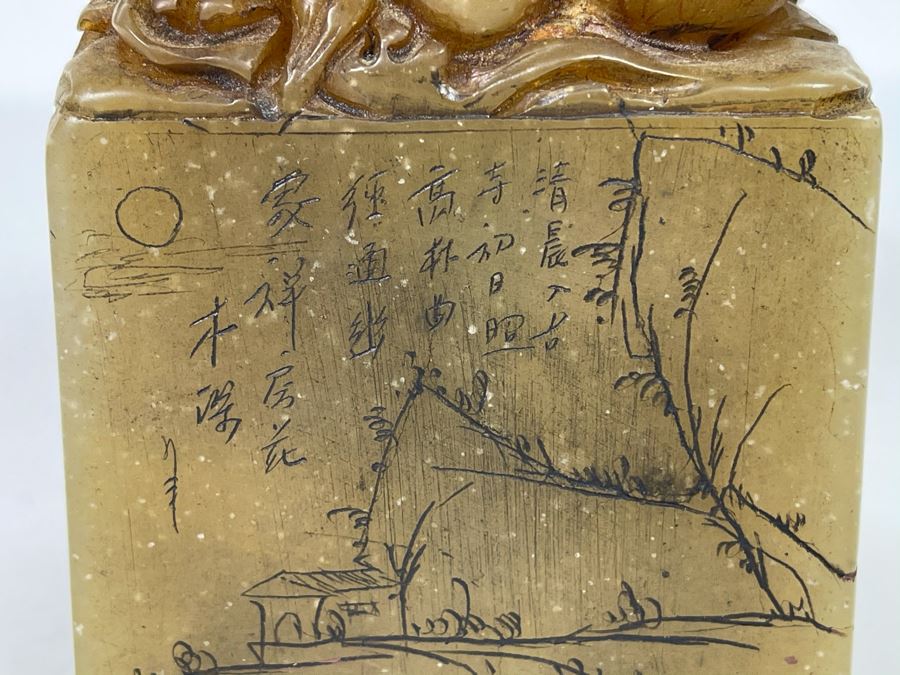 清晨入古
寺初日照
高林曲
徑通幽
家禅房花
木深